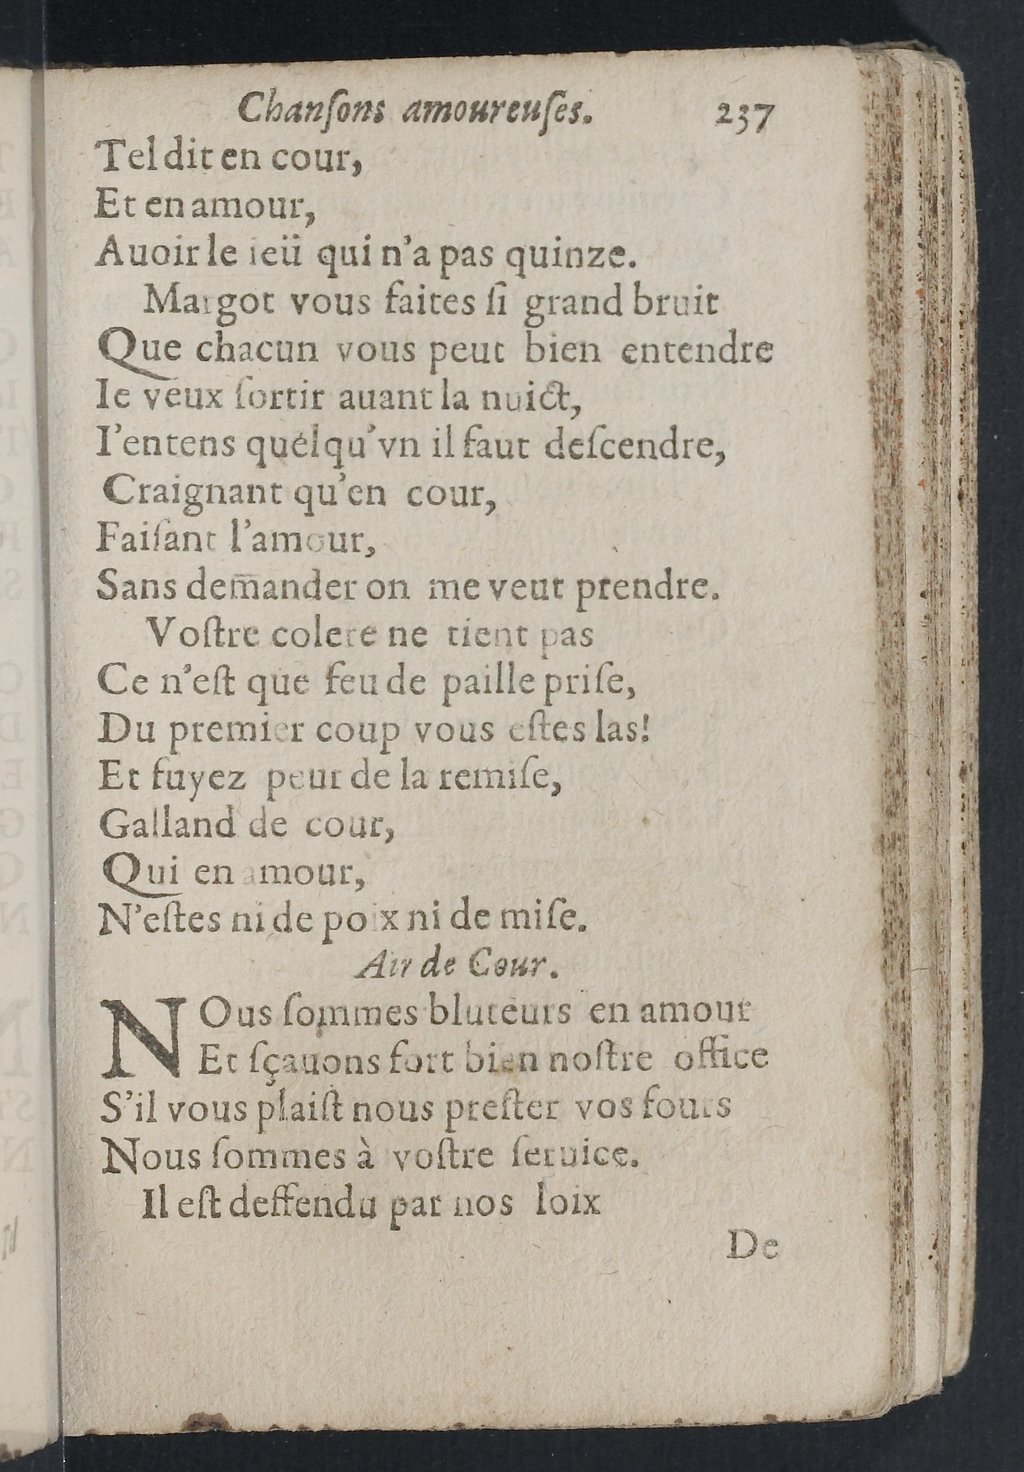 Chanſons amoureuſes. 237
Tel dit en cour,
Et en amour,
Auoir le ieü qui n'a pas quinze.
Margot vous faites ſi grand bruit
Que chacun vous peut bien entendre
Ie veux ſortir auant la nuict,
I'entens quelqu'vn il faut deſcendre,
Craignant qu'en cour,
Faiſant l'amour,
Sans dem̄ander on me veut prendre.
Voſtre colere ne tient pas
Ce n'eſt que feu de paille priſe,
Du premier coup vous eſtes las!
Et fuyez peur de la remiſe,
Galland de cour,
Qui en amour,
N'eſtes ni de poix ni de miſe.
Air de Cour.
NOus ſommes bluteurs en amour
Et ſçauons fort bien noſtre office
S'il vous plaiſt nous preſter vos fours
Nous ſommes à voſtre ſeruice.
Il eſt deffendu par nos loix
De